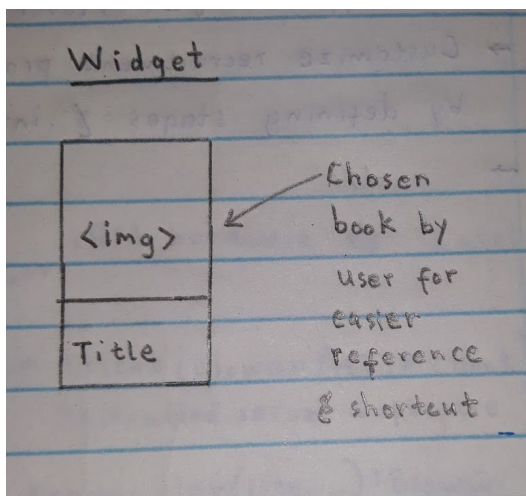 Widget
<img>
Title
Chosen
book by
user for
easier
reference
& shortcut